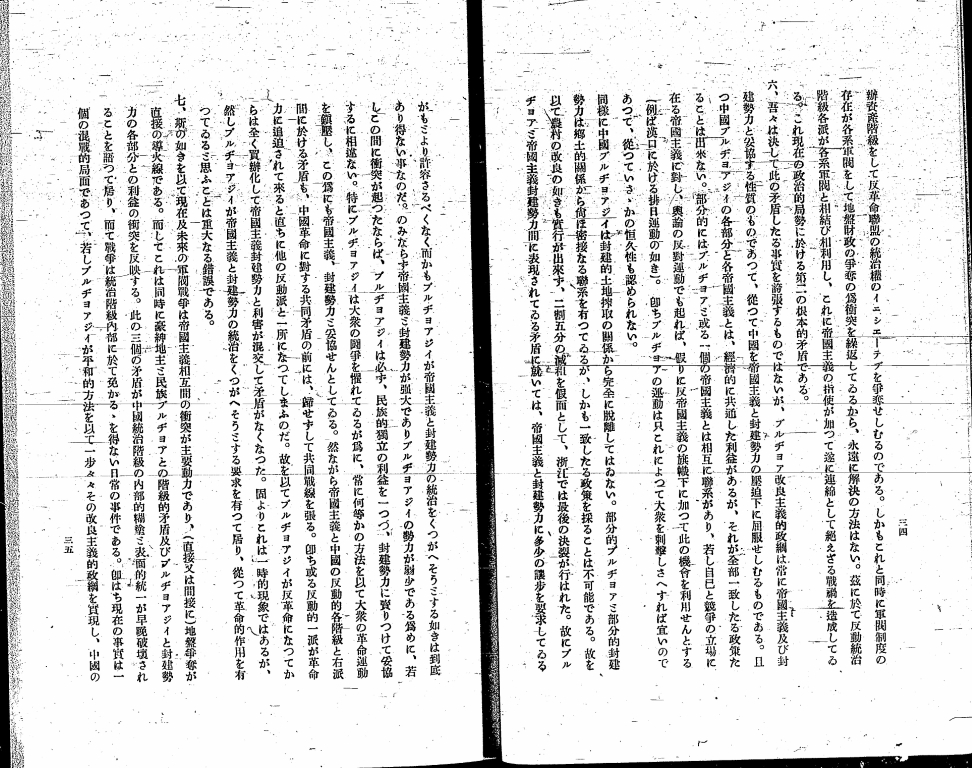 三四
辦資產階級をして反革命聯盟の統治權のイニシエーチブを爭奪せしむるのである。しかもこれと同時に軍閥制度の
存在が各系軍閥をして地盤財政の爭奪の爲衝突を繰返してゐるから、永遠に解決の方法はない。茲に於て反動統治
階級各派が各系軍閥と相結び相利用し、これに帝國主義の指使が加つて遂に連綿として絶えざる戰禍を造成してゐ
る。これ現在の政治的局勢に於ける第二の根本的矛盾である。
六、吾々は決して此の矛盾したる事實を誇張するものではないが、ブルヂョア改良主義的政綱は常に帝國主義及び封
建勢力と妥協する性質のものであつて、從つて中國を帝國主義と封建勢力の壓迫下に屈服せしむるものである。且
つ中國ブルヂョアジイの各部分と各帝國主義とは、經濟的に共通した利益があるが、それが全部一致したる政策た
ることは出來ない。部分的にはブルヂョアミ或る一個の帝國主義とは相互に聯系があり、若し自己と競爭の立場に
在る帝國主義に對し、輿論の反對運動でも起れば、假りに反帝國主義の旗幟下に加つて此の機會を利用せんとする
(例ば漢口に於ける排日運動の如き)。卽ちブルヂョアの運動は只これによつて大衆を刺擊しさへすれば宜いので
あつて、從つていさゝかの恒久性も認められない。
同樣に中國ブルヂョアジイは封建的土地搾取の關係から完全に脫離してはゐない。部分的ブルヂョアミ部分的封建
勢力は鄕土的關係から尙ほ密接なる聯系を有つてゐるが、しかも一致したる政策を採ることは不可能である。故を
以て農村の改良の如きも實行が出來ず、二割五分の減租を假面として、浙江では最後の決裂が行はれた。故にブル
ヂョアミ帝國主義封建勢力間に表現されてゐる矛盾に就いては、帝國主義と封建勢力に多少の讓步を要求してゐる
がもミより許容さるべくなく而かもブルヂョアジイが帝國主義と封建勢力の統治をくつがへそうミする如きは到底
あり得ない事なのだ。のみならず帝國主義ミ封建勢力が强大でありブルヂョアジイの勢力が弱少である爲めに、若
しこの間に衝突が起つたならば、ブルヂョアジイは必ず、民族的獨立の利益を一つづゝ封建勢力に賣りつけて妥協
するに相違ない。特にブルヂョアジイは大衆の鬪爭を懼れてゐるが爲に、常に何等かの方法を以て大衆の革命運動
を鎭壓し、この爲にも帝國主義、封建勢力ミ妥協せんとしてゐる。然ながら帝國主義と中國の反動的各階級と右派
間に於ける矛盾も、中國革命に對する共同矛盾の前には、歸せずして共同戰線を張る。卽ち或る反動的一派が革命
力に追迫されて來ると直ちに他の反動派と一所になつてしまふのだ。故を以てブルヂョアジイが反革命になつてか
らは全く買辦化して帝國主義封建勢力と利害が混交して矛盾がなくなつた。固よりこれは一時的現象ではあるが、
然しブルヂョアジイが帝國主義と封建勢力の統治をくつがへそうミする要求を有つて居り、從つて革命的作用を有
つてゐるミ思ふことは重大なる錯誤である。
七、斯の如きを以て現在及未來の軍閥戰爭は帝國主義相互間の衝突が主要動力であり、(直接又は間接に)地盤爭奪が
直接の導火線である。而してこれは同時に豪紳地主ミ民族ブルヂョアとの階級的矛盾及びブルヂョアジイと封建勢
力の各部分との利益の衝突を反映する。此の三個の矛盾が中國統治階級の內部的糊塗ミ表面的統一が早晚破壞され
ることを語つて居り、而て戰爭は統治階級內部に於て免かるゝを得ない日常の事件である。卽はち現在の事實は一
個の混戰的局面であつて、若しブルヂョアジイが平和的方法を以て一步々々その改良主義的政綱を實現し、中國の
三五